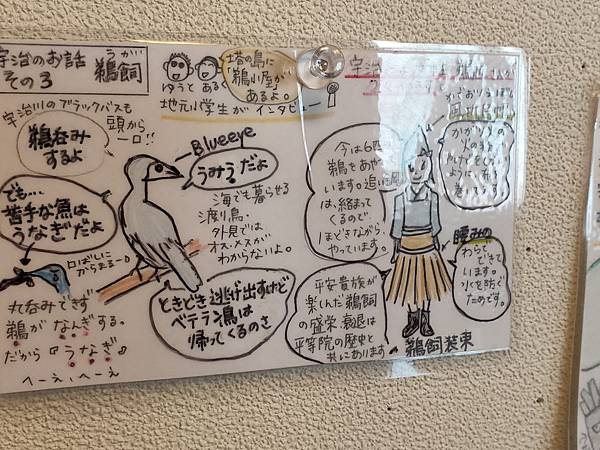 宇治のお話
その3
うがい
鵜飼
ゆうと あるく
塔の島に
「鵜小屋」が
あるよ。
地元小学生がインタビュー
宇治川のブラックバスも
頭から
一口!!
鵜呑み
するよ
でも…
苦手な魚は
うなぎだよ
口ばしに
からまる〜
丸呑みできず
鵜がなんぎする。
だから『うなぎ』
へーえ、へーえ
Blueeye
うみうだよ
海でも暮らせる
渡り鳥。
外見では
オス・メスが
わからないよ。
ときどき逃げ出すけど
ベテラン鳥は
帰ってくるのさ
今は6匹
鵜をあやつ
います。追い綱
は、絡まって
くるので、
ほどきながら、
やっています。
平安貴族が
楽しんだ鵜飼
の盛栄衰退は
平等院の歴史と
共にあります。
かがり火の
火のきを
ように布を
巻いてます。
腰みの
わらで
できて
います。
水を防ぐ
ためです。
鵜飼装束